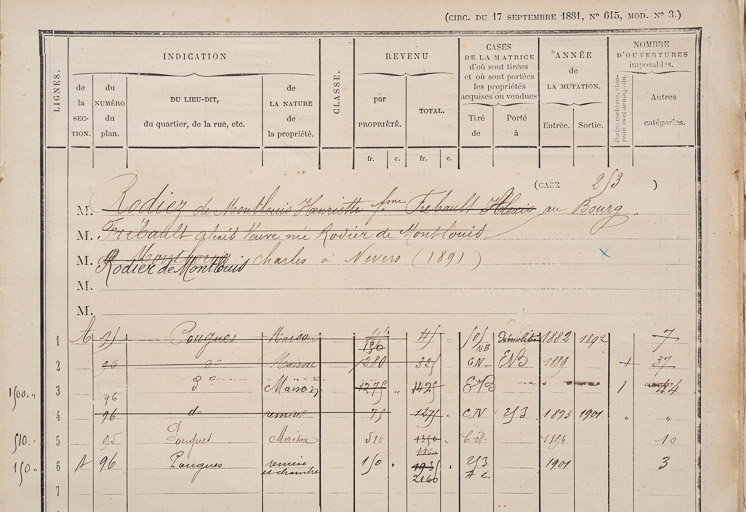 (CIRC. DU 17 SEPTEMBRE 1881, N° 615, MOD. N° 3.)
LIGNES.
INDICATION
de la SECTION.
du NUMÉRO du plan.
DU LIEU-DIT, du quartier, de la rue, etc.
de LA NATURE de la propriété.
CLASSE.
REVENU
par PROPRIÉTÉ.
TOTAL.
fr. c. fr. c.
CASES DE LA MATRICE d'où sont tirées et où sont portées les propriétés acquises ou vendues
Tiré de
Porté à
ANNÉE de LA MUTATION.
Entrée. Sortie.
NOMBRE D'OUVERTURES imposables.
Autres catégories.
(CASE 213 )
M. Rodier de Montlouis Henriette fme Frébault Alexis au Bourg.
M. Frébault Alexis Veuve née Rodier de Montlouis
M. Rodier de Montlouis Charles à Nevers (1891)
M.
M.
1 A 95 Pougues Maison démolition 1882 1892 7
2 96 do Maison 280 325 CN 1889 + 37
3 96 do Maison 1275 1425 1
1500
4 96 do remise 75 1275 CN 213 1893 1901 " "
5 95 Pouques 510 1350 1894 10
510
6 A 96 Pougues remise et chambre 150 1935 2160 213 1901 3
150
7